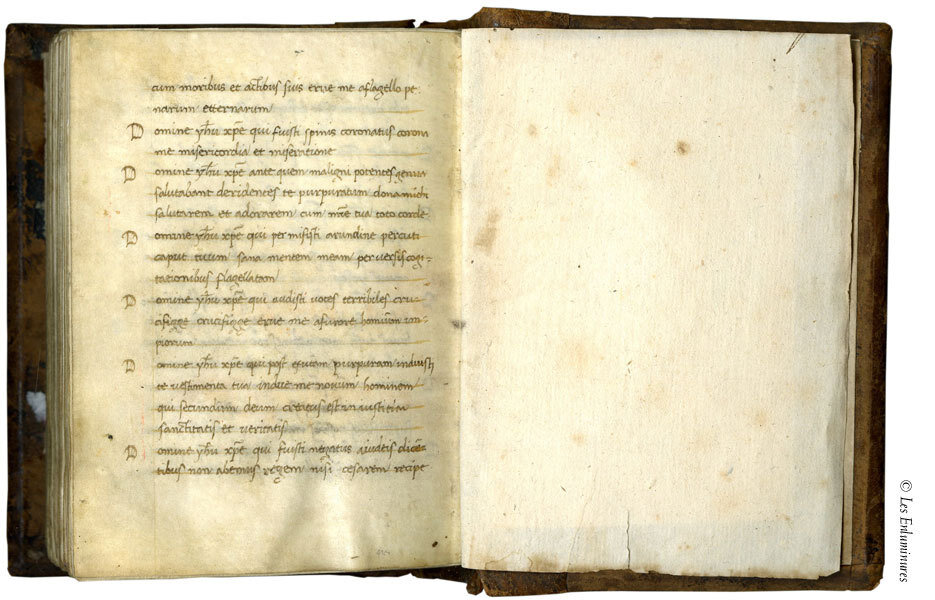 cum moribus et actibus suis erue me aflagello pe-
narum etternarum
Domine yhu xpe qui fuisti spinis coronatus corona
me misericordia et miseratione
Domine yhu xpe ante quem maligni potentes genua
salutabant deridentes te purpuratum dona michi
salutarem et adorarem cum mre tua toto corde
Domine yhu xpe qui permisisti arundine percuti
caput tuum sana mentem meam perversis cogi-
tacionibus flagellatam
Domine yhu xpe qui audisti voces terribiles cru-
cifigge crucifigge erue me afurore hominum im-
piorum
Domine yhu xpe qui post purpuram induisti
te vestimenta tua indue me novum hominem
qui secundum deum creatus est in iustitia
sanctitatis et veritatis
Domine yhu xpe qui fuisti negatus iudeis dicen-
tibus non abemus regem nisi cesarem recipe
© Les Enluminures